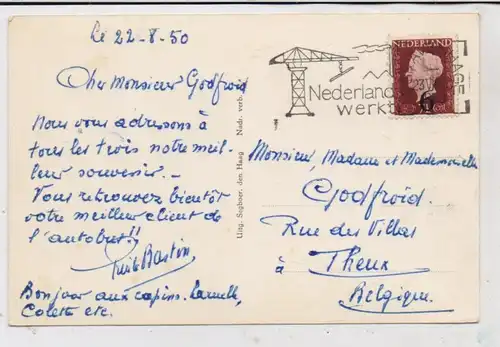 Le 22-8-50
Cher Monsieur Godfroid
Nous vous adressons à
tous les trois notre meil-
leur souvenir –
Vous retrouvez bientôt
votre meilleur client de
l'autobus!!
Bastin
Bonjour aux copins.
Colette etc.
Uitg. Segboer, den Haag Nadr. verb.
Nederland
werkt
NEDERLAND
6
Monsieur, Madame et Mademoiselle
Godfroid
Rue des Villas
à Theux
Belgique.